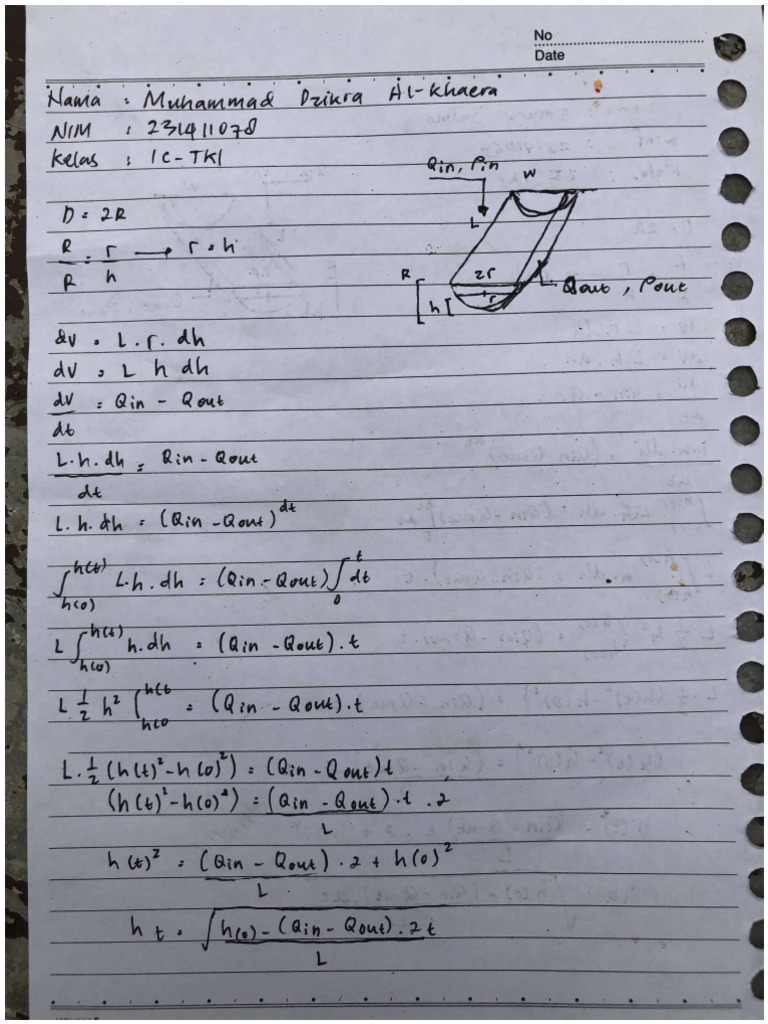 No
Date
Nama : Muhammad Dzikra Al-khaera
NIM : 231411078
Kelas : 1C-TKI
Qin, ρin
W
L
D = 2R
R/R = r/h → r = h
R
2r
h
r
Qout, ρout
dv = L. r. dh
dv = L h dh
dv/dt = Qin - Qout
L.h.dh/dt = Qin - Qout
L.h.dh = (Qin - Qout) dt
∫h(0)^h(t) L.h.dh = (Qin - Qout) ∫0^t dt
L ∫h(0)^h(t) h.dh = (Qin - Qout).t
L. 1/2 h² |h(0^h(t = (Qin - Qout).t
L. 1/2 (h(t)² - h(0)²) = (Qin - Qout)t
(h(t)² - h(0)²) = (Qin - Qout)/L . t . 2
h(t)² = (Qin - Qout)/L . 2 + h(0)²
h t = √(h(0) - (Qin - Qout). 2 t/L)